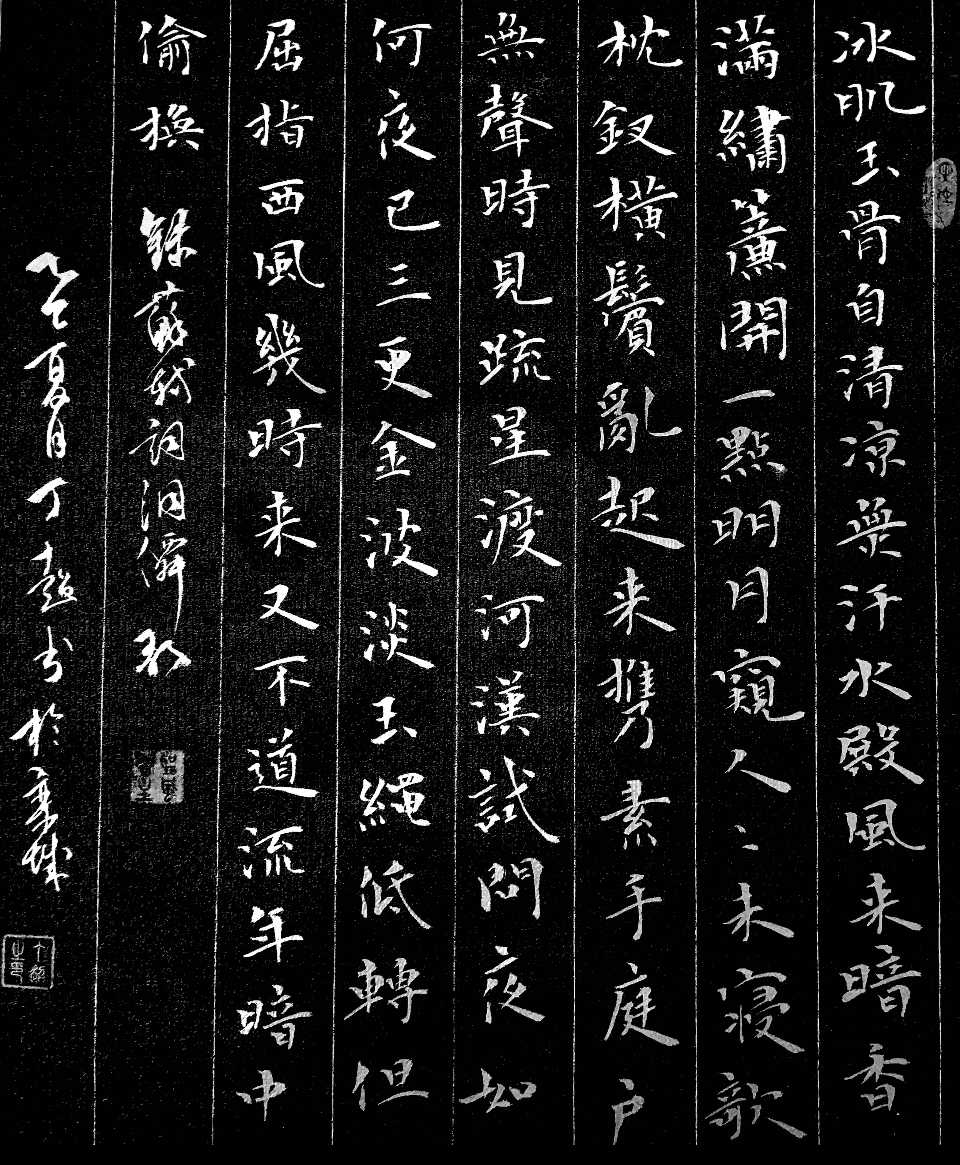 冰肌玉骨自清凉無汗水殿風来暗香
滿繡簾開一點明月窺人〻未寢歌
枕釵橫鬢亂起来携素手庭户
無聲時見疏星渡河漢試問夜如
何夜已三更金波淡玉繩低轉但
屈指西風幾時来又不道流年暗中
偷換 錄蘇軾詞洞僊歌
夏月丁书於城